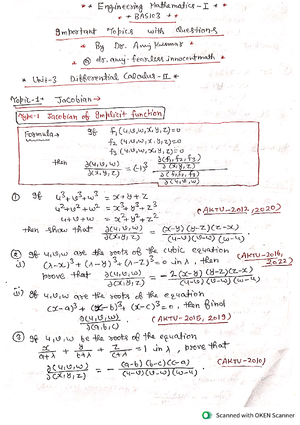 * * Engineering Mathematics-I * *
* * BAS103 * *
Important Topics with Questions
* By Dr. Anuj Kumar *
* @ dr. anuj-fearless innocentmath *
* Unit-3 Differential Calculus-II *
Topic-1 → Jacobian →
Type-1 Jacobian of Implicit function
Formula → If f₁(u,v,w,x,y,z)=0
f₂(u,v,w,x,y,z)=0
f₃(u,v,w,x,y,z)=0
then ∂(u,v,w)/∂(x,y,z) = (-1)³ [∂(f₁,f₂,f₃)/∂(x,y,z)] / [∂(f₁,f₂,f₃)/∂(u,v,w)]
① If u³+v³+w³ = x+y+z
u²+v²+w² = x³+y³+z³
u+v+w = x²+y²+z² (AKTU-2012, 2020)
then show that ∂(u,v,w)/∂(x,y,z) = (x-y)(y-z)(z-x)/(u-v)(v-w)(w-u) .
② If u,v,w are the roots of the cubic equation (AKTU-2016,
i) (λ-x)³+(λ-y)³+(λ-z)³=0 in λ, then 2022)
prove that ∂(u,v,w)/∂(x,y,z) = -2(x-y)(y-z)(z-x)/(u-v)(v-w)(w-u)
ii) If u,v,w are the roots of the equation
(x-a)³+(x-b)³+(x-c)³=0, then find
∂(u,v,w)/∂(a,b,c) (AKTU-2015, 2019)
③ If u,v,w be the roots of the equation
x/(a+λ) + y/(b+λ) + z/(c+λ) = 1 in λ, prove that
∂(x,y,z)/∂(u,v,w) = - (u-v)(v-w)(w-u)/(a-b)(b-c)(c-a) (AKTU-2010)
Scanned with OKEN Scanner